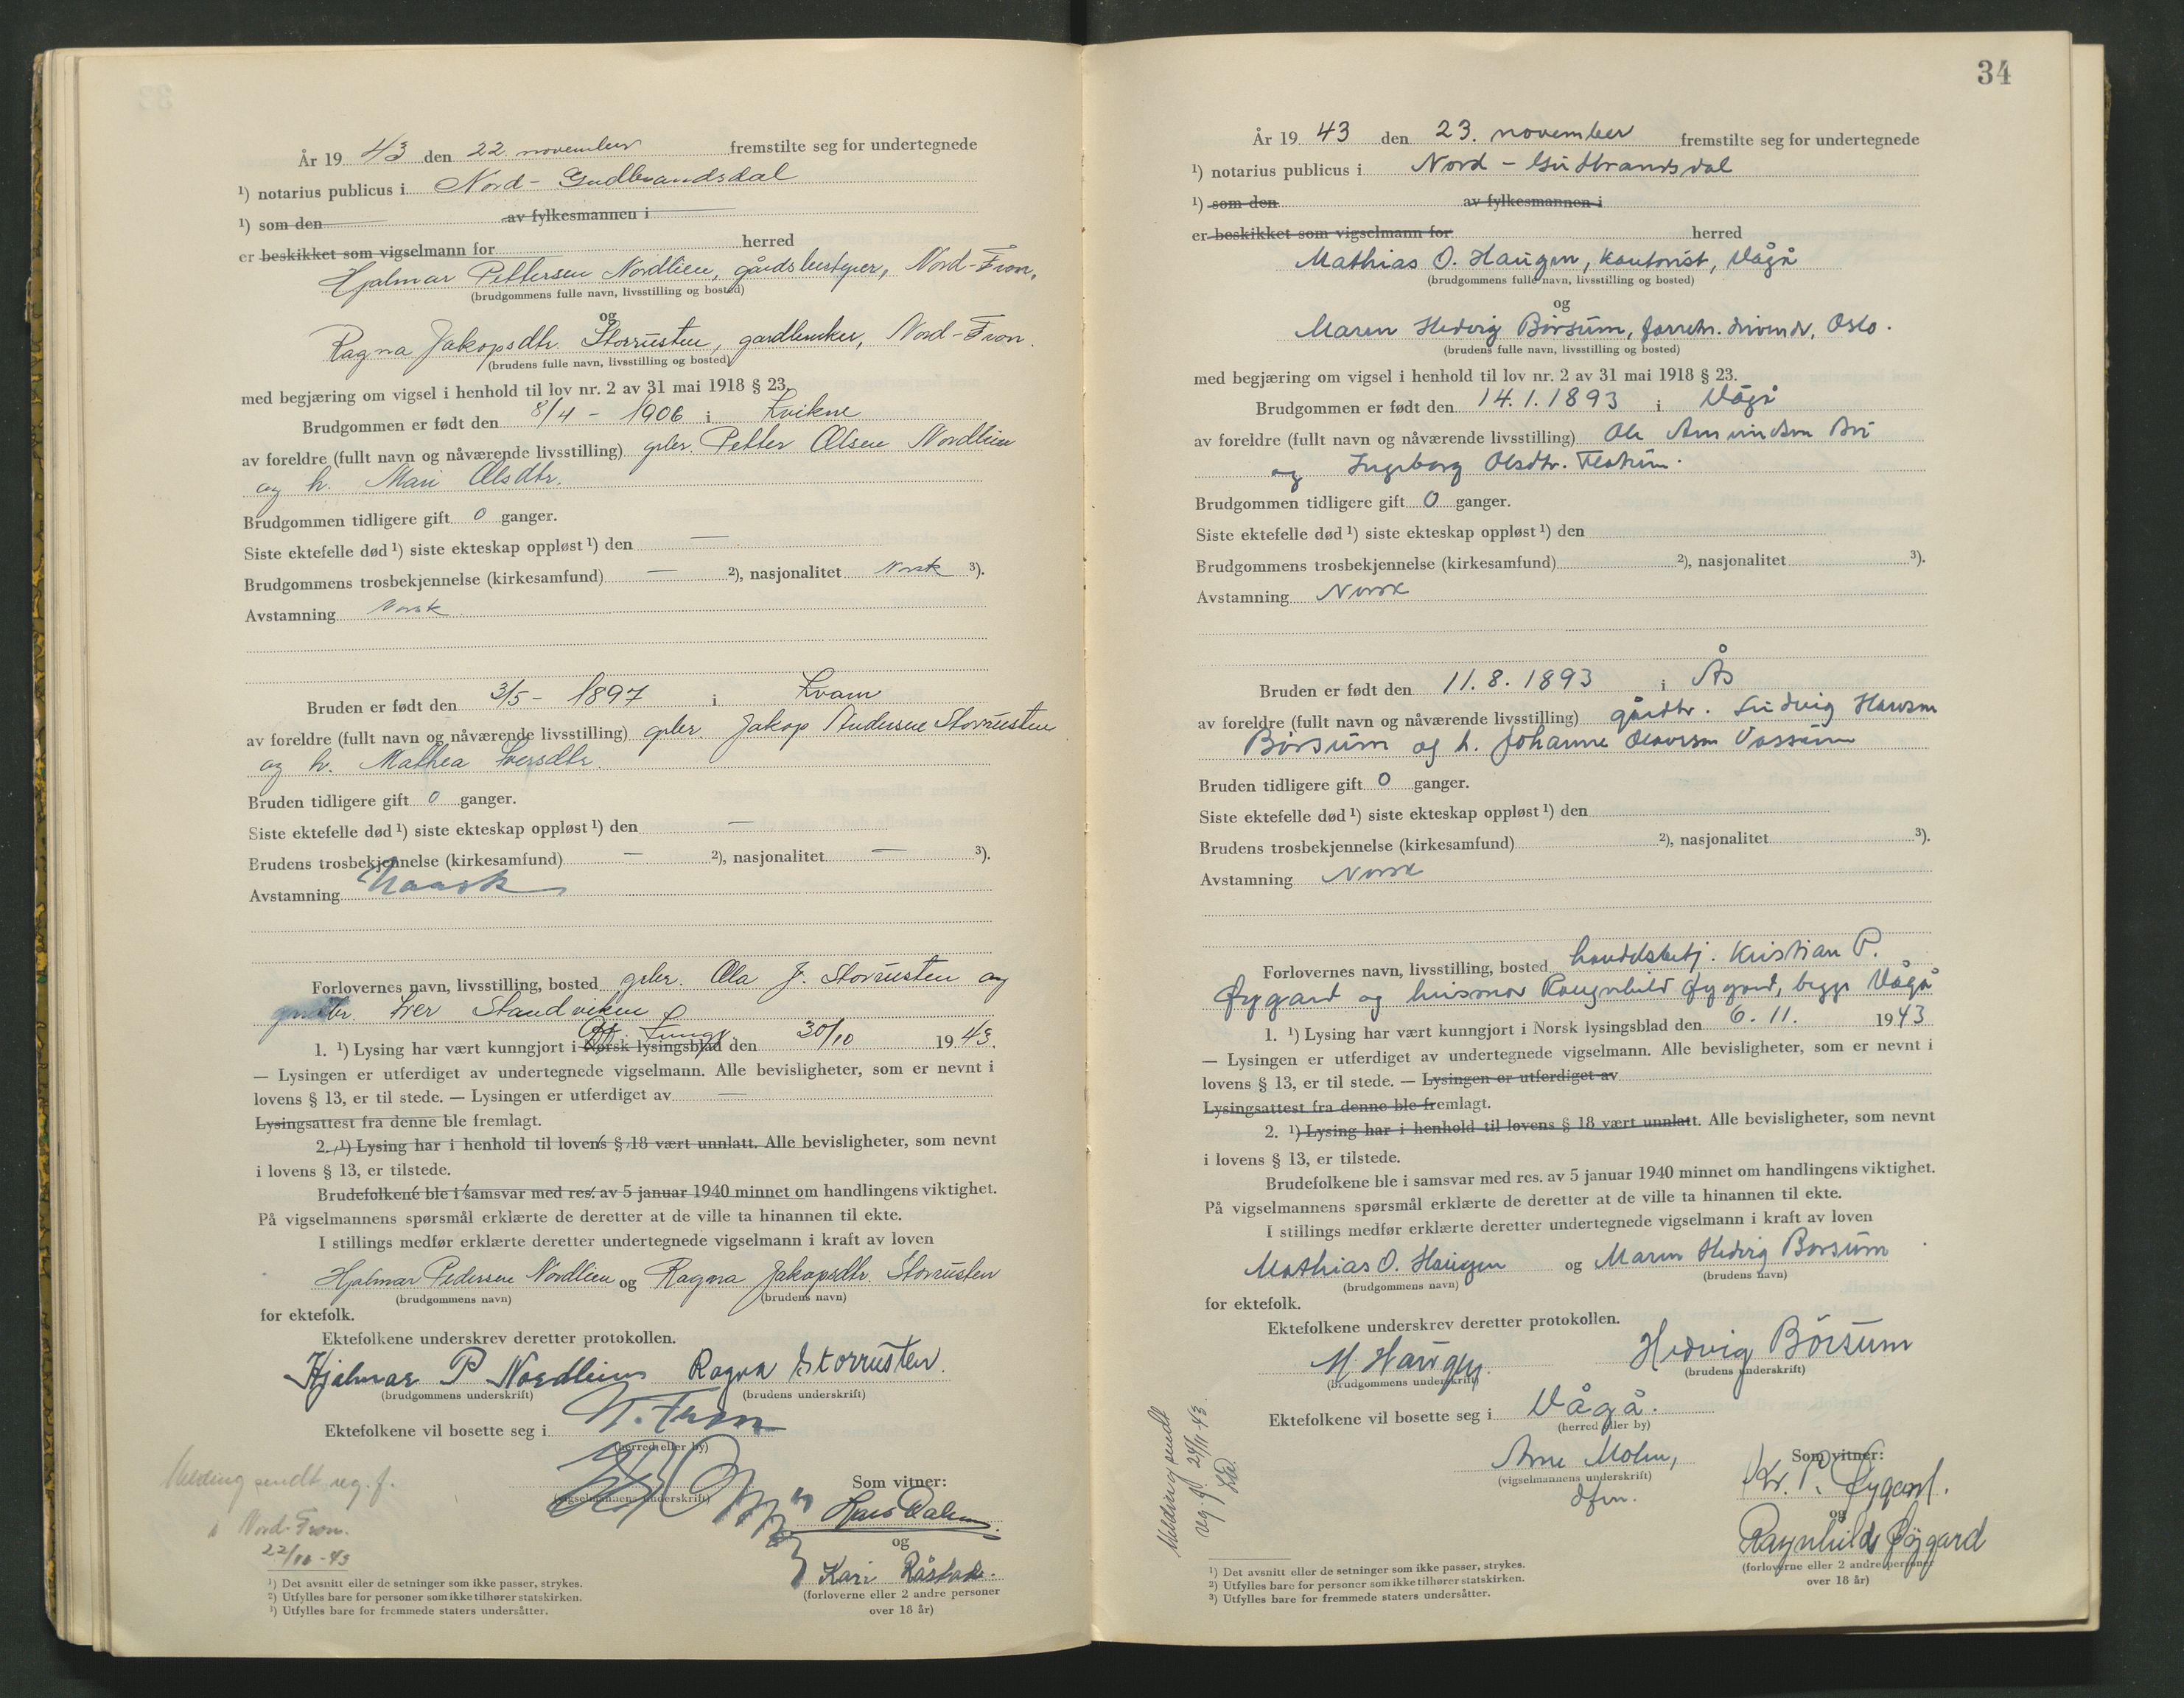 År 19 43 den 22. november fremstilte seg for undertegnede
¹) notarius publicus i Nord-Gudbrandsdal
¹) som den av fylkesmannen i
er beskikket som vigselmann for herred
Hjalmar Pettersen Nordlien, gårdsbestyrer, Nord-Fron,
(brudgommens fulle navn, livsstilling og bosted)
og
Ragna Jakopsdtr. Storrusten, gardbruker, Nord-Fron.
(brudens fulle navn, livsstilling og bosted)
med begjæring om vigsel i henhold til lov nr. 2 av 31 mai 1918 § 23.
Brudgommen er født den 8/4 - 1906 i Kvikne
av foreldre (fullt navn og nåværende livsstilling) gbr. Petter Olsen Nordlien
og h. Mari Olsdtr.
Brudgommen tidligere gift 0 ganger.
Siste ektefelle død ¹) siste ekteskap oppløst ¹) den —
Brudgommens trosbekjennelse (kirkesamfund) — ²), nasjonalitet Norsk ³).
Avstamning Norsk.
Bruden er født den 3/5 - 1897 i Kvam
av foreldre (fullt navn og nåværende livsstilling) gbr. Jakop Andersen Storrusten
og h. Mathea Iversdtr.
Bruden tidligere gift 0 ganger.
Siste ektefelle død ¹) siste ekteskap oppløst ¹) den —
Brudens trosbekjennelse (kirkesamfund) — ²), nasjonalitet — ³).
Avstamning Naask
Forlovernes navn, livsstilling, bosted gbr. Ola J. Storrusten og
Iver Standviken
1. ¹) Lysing har vært kunngjort i Norsk lysingsblad den 30/10 1943.
— Lysingen er utferdiget av undertegnede vigselmann. Alle bevisligheter, som er nevnt i
lovens § 13, er til stede. — Lysingen er utferdiget av —
Lysingsattest fra denne ble fremlagt.
2. ¹) Lysing har i henhold til lovens § 18 vært unnlatt. Alle bevisligheter, som nevnt
i lovens § 13, er tilstede.
Brudefolkene ble i samsvar med res. av 5 januar 1940 minnet om handlingens viktighet.
På vigselmannens spørsmål erklærte de deretter at de ville ta hinannen til ekte.
I stillings medfør erklærte deretter undertegnede vigselmann i kraft av loven
Hjalmar Pedersen Nordlien og Ragna Jakopsdtr. Storrusten
(brudgommens navn) (brudens navn)
for ektefolk.
Ektefolkene underskrev deretter protokollen.
Hjalmar P Nordlien Ragna Storrusten.
(brudgommens underskrift) (brudens underskrift)
Ektefolkene vil bosette seg i N. Fron
(herred eller by)
Melding sendt reg. f.
i Nord-Fron.
22/11-43
(vigselmannens underskrift)
Som vitner:
og
Kari
(forloverne eller 2 andre personer
over 18 år)
¹) Det avsnitt eller de setninger som ikke passer, strykes.
²) Utfylles bare for personer som ikke tilhører statskirken.
³) Utfylles bare for fremmede staters undersåtter.
34
År 19 43 den 23. november fremstilte seg for undertegnede
¹) notarius publicus i Nord - Gudbrandsdal
¹) som den av fylkesmannen i
er beskikket som vigselmann for herred
Mathias O. Haugen, kontorist, Vågå
(brudgommens fulle navn, livsstilling og bosted)
og
Maren Hedvig Børsum, forretn. drivende, Oslo.
(brudens fulle navn, livsstilling og bosted)
med begjæring om vigsel i henhold til lov nr. 2 av 31 mai 1918 § 23.
Brudgommen er født den 14.1.1893 i Vågå
av foreldre (fullt navn og nåværende livsstilling) Ole Amundsen
og Ingeborg Olsdtr.
Brudgommen tidligere gift 0 ganger.
Siste ektefelle død ¹) siste ekteskap oppløst ¹) den
Brudgommens trosbekjennelse (kirkesamfund) ²), nasjonalitet ³).
Avstamning Norsk
Bruden er født den 11.8.1893 i Ås
av foreldre (fullt navn og nåværende livsstilling) gårdbr. Ludvig Hansen
Børsum og h. Johanne Olavesen Vassum
Bruden tidligere gift 0 ganger.
Siste ektefelle død ¹) siste ekteskap oppløst ¹) den
Brudens trosbekjennelse (kirkesamfund) ²), nasjonalitet ³).
Avstamning Norsk
Forlovernes navn, livsstilling, bosted handelsbetj. Kristian P.
Øygard og husmor Ragnhild Øygard, begge Vågå
1. ¹) Lysing har vært kunngjort i Norsk lysingsblad den 6.11. 1943
— Lysingen er utferdiget av undertegnede vigselmann. Alle bevisligheter, som er nevnt i
lovens § 13, er til stede. — Lysingen er utferdiget av
Lysingsattest fra denne ble fremlagt.
2. ¹) Lysing har i henhold til lovens § 18 vært unnlatt. Alle bevisligheter, som nevnt
i lovens § 13, er tilstede.
Brudefolkene ble i samsvar med res. av 5 januar 1940 minnet om handlingens viktighet.
På vigselmannens spørsmål erklærte de deretter at de ville ta hinannen til ekte.
I stillings medfør erklærte deretter undertegnede vigselmann i kraft av loven
Mathias O. Haugen og Maren Hedvig Børsum
(brudgommens navn) (brudens navn)
for ektefolk.
Ektefolkene underskrev deretter protokollen.
M. Haugen. Hedvig Börsum
(brudgommens underskrift) (brudens underskrift)
Ektefolkene vil bosette seg i Vågå.
(herred eller by)
Melding sendt
reg. f. 24/11-43
Arne Molen,
(vigselmannens underskrift)
dfm.
Som vitner:
Kr. P. Øygard.
og
Ragnhild Øygard
(forloverne eller 2 andre personer
over 18 år)
¹) Det avsnitt eller de setninger som ikke passer, strykes.
²) Utfylles bare for personer som ikke tilhører statskirken.
³) Utfylles bare for fremmede staters undersåtter.